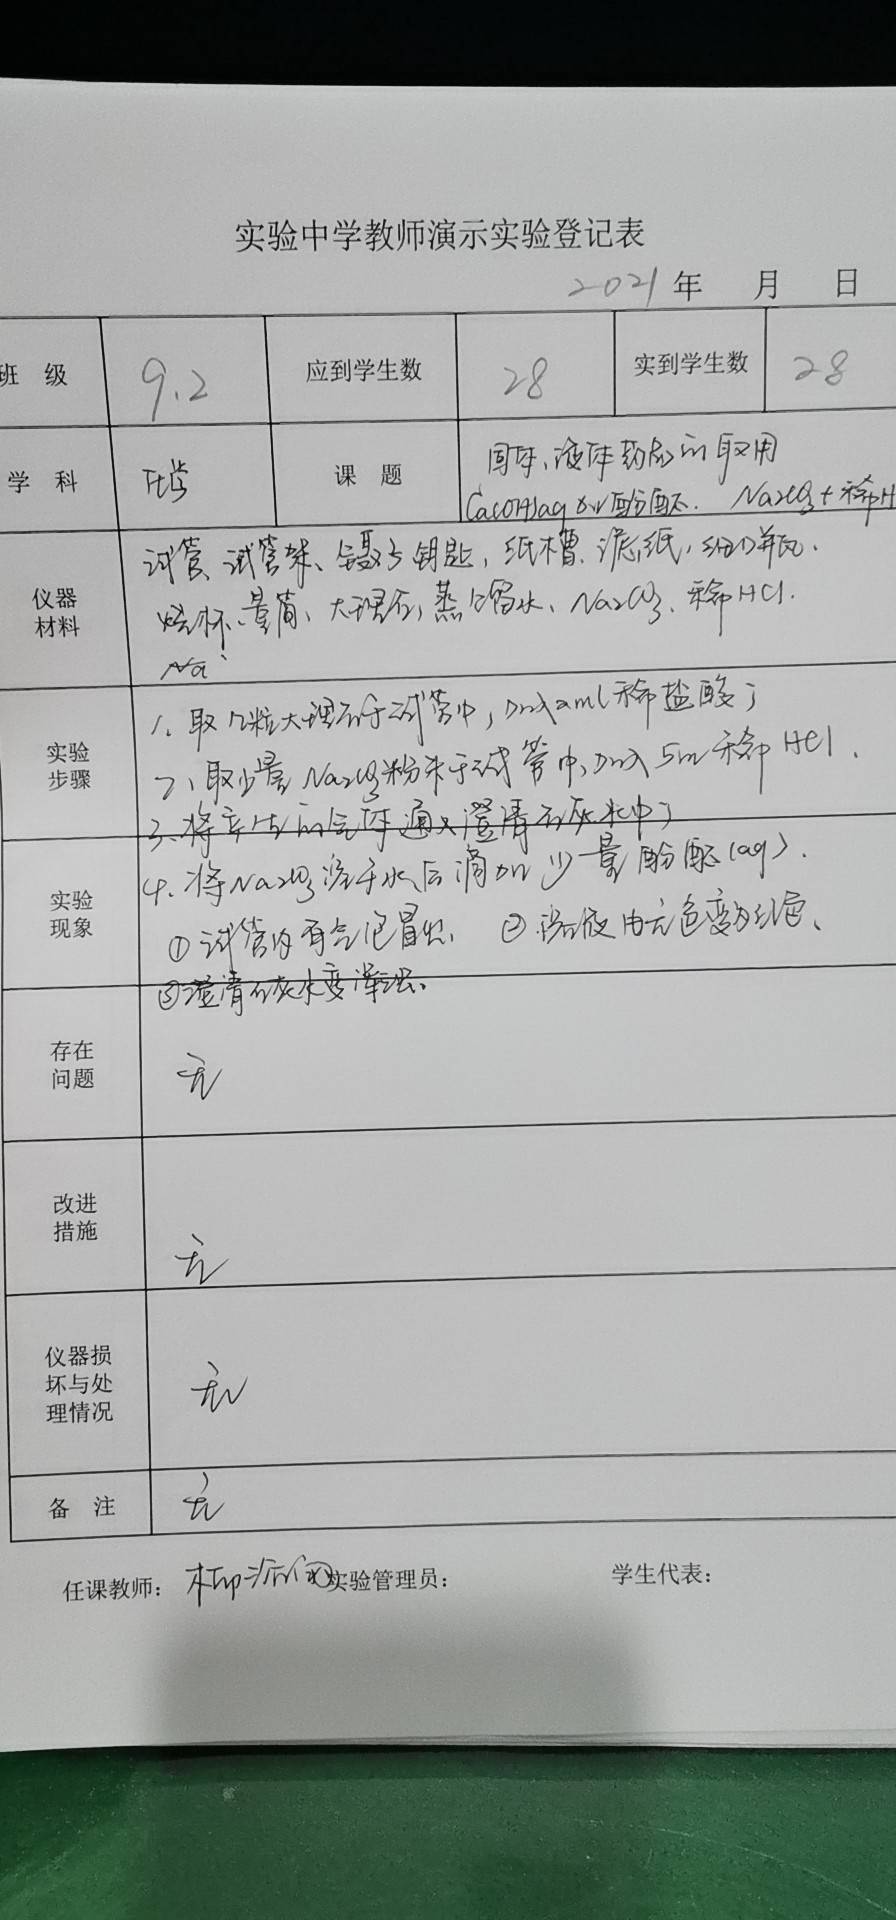 实验中学教师演示实验登记表
2021年 月 日
班 级 9.2 应到学生数 28 实到学生数 28
学 科 化学 课 题 固体、液体药品的取用
Ca(OH)2aq 加酚酞. Na2CO3+稀H
仪器材料 试管、试管架、镊子、钥匙,纸槽.滤纸,细口瓶.
烧杯、量筒、大理石,蒸馏水、Na2CO3、稀HCl.
Na
实验步骤 1、取几粒大理石于试管中,加入2ml稀盐酸;
2、取少量Na2CO3粉末于试管中,加入5m稀HCl.
3、将产生的气体通入澄清石灰水中;
4、将Na2CO3溶于水后滴加少量酚酞(aq).
实验现象 ①试管内有气泡冒出. ②溶液由无色变为红色、
③澄清石灰水变浑浊.
存在问题 无
改进措施 无
仪器损坏与处理情况 无
备 注 无
任课教师: 实验管理员: 学生代表: